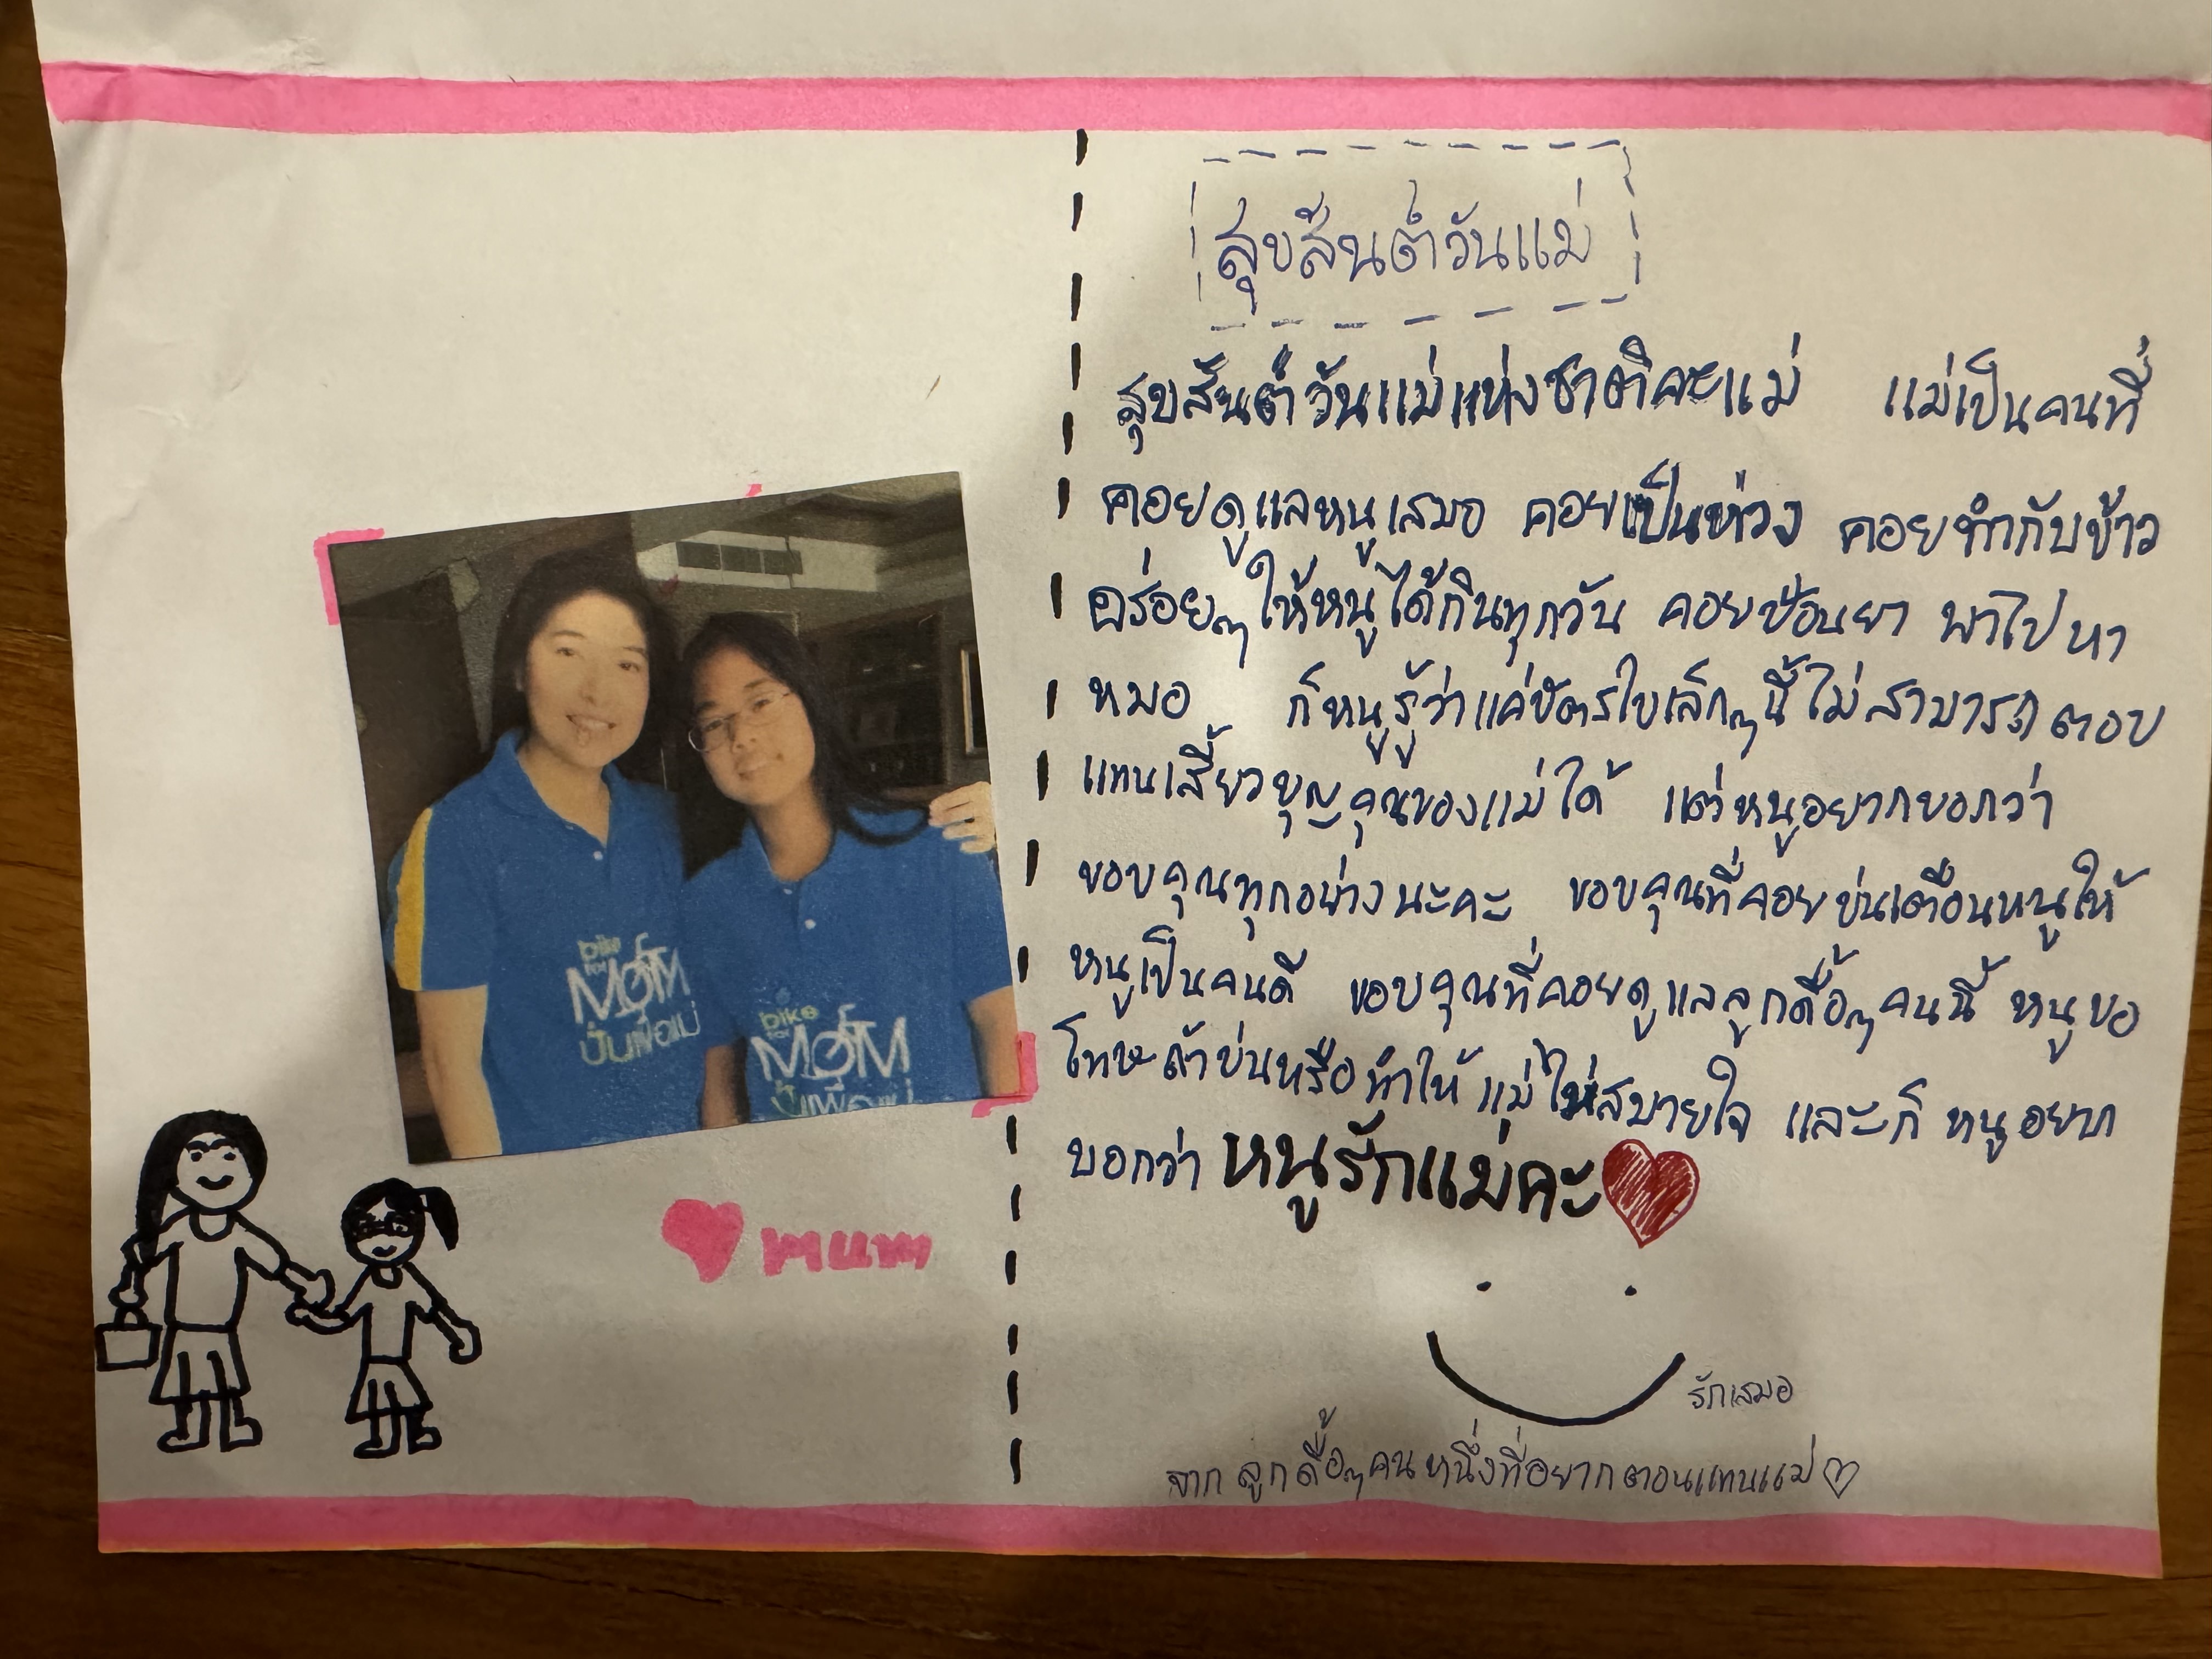 bike
for
MOM
ปั่นเพื่อแม่
bike
for
MOM
ปั่นเพื่อแม่
mum
สุขสันต์วันแม่
สุขสันต์วันแม่แห่งชาติคะแม่ แม่เป็นคนที่
คอยดูแลหนูเสมอ คอยเป็นห่วง คอยทำกับข้าว
อร่อยๆให้หนูได้กินทุกวัน คอยป้อนยา พาไปหา
หมอ ก็หนูรู้ว่าแค่บัตรใบเล็กๆนี้ไม่สามารถตอบ
แทนเสี้ยวบุญคุณของแม่ได้ แต่หนูอยากบอกว่า
ขอบคุณทุกอย่างนะคะ ขอบคุณที่คอยบ่นเตือนหนูให้
หนูเป็นคนดี ขอบคุณที่คอยดูแลลูกดื้อๆคนนี้ หนูขอ
โทษถ้าบ่นหรือทำให้แม่ไม่สบายใจ และก็ หนูอยาก
บอกว่า หนูรักแม่คะ
รักเสมอ
จาก ลูกดื้อๆคนหนึ่งที่อยากตอบแทนแม่